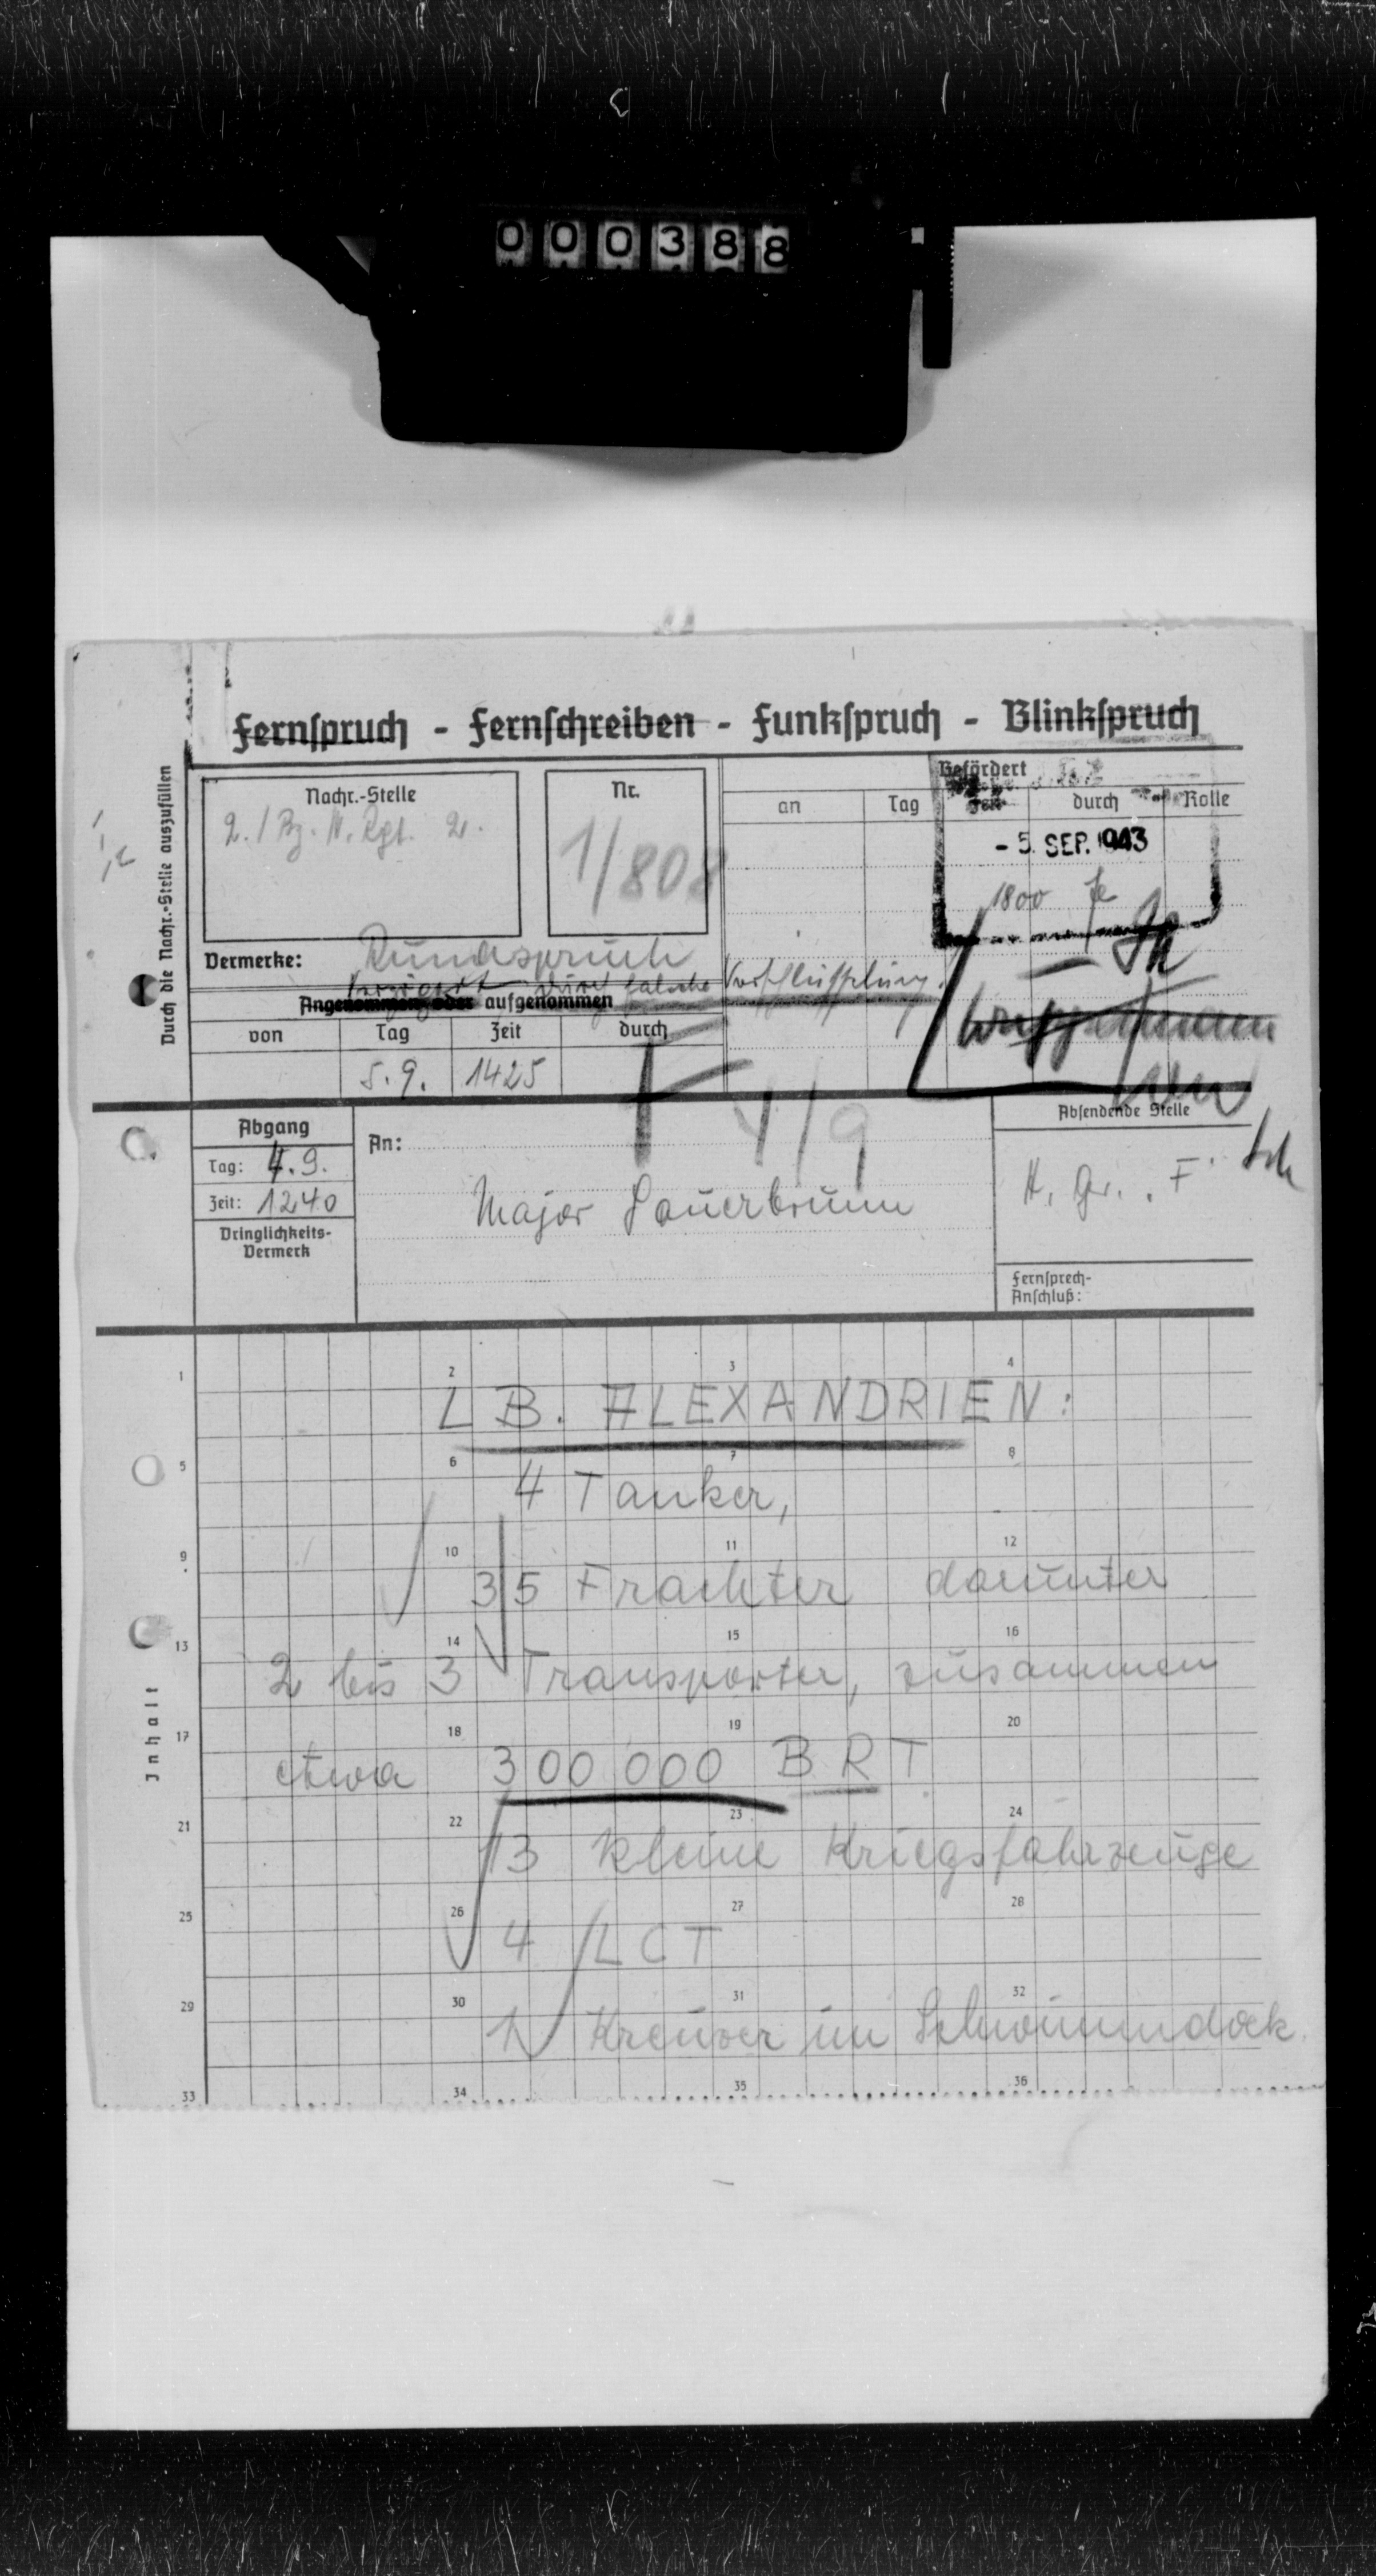 000388
Fernspruch - Fernschreiben - Funkspruch - Blinkspruch
Durch die Nachr.-Stelle auszufüllen
Nachr.-Stelle
2. / Pz. N. Rgt. 2.
Nr.
1/808
Befördert
an Tag Zeit durch Rolle
- 5. SEP. 1943
1800
Vermerke: Rundspruch
verzögert durch falsche Verschlüsselung.
Angenommen oder aufgenommen
von Tag Zeit durch
5.9. 1425
4/9
Abgang
Tag: 4.9.
Zeit: 1240
Dringlichkeits-
Vermerk
An:
Major Sauerbrunn
Absendende Stelle
H. Gr. F
Fernsprech-
Anschluß:
Inhalt
1 2 3 4
L B. ALEXANDRIEN:
5 6 7 8
4 Tanker,
9 10 11 12
35 Frachter darunter
13 14 15 16
2 bis 3 Transporter, zusammen
17 18 19 20
etwa 300 000 BRT
21 22 23 24
13 kleine Kriegsfahrzeuge
25 26 27 28
4 LCT
29 30 31 32
1 Kreuzer im Schwimmdock.
33 34 35 36